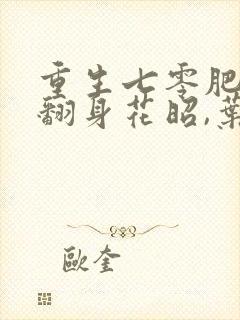 重生七零肥
翻身花昭,葉
歐奎